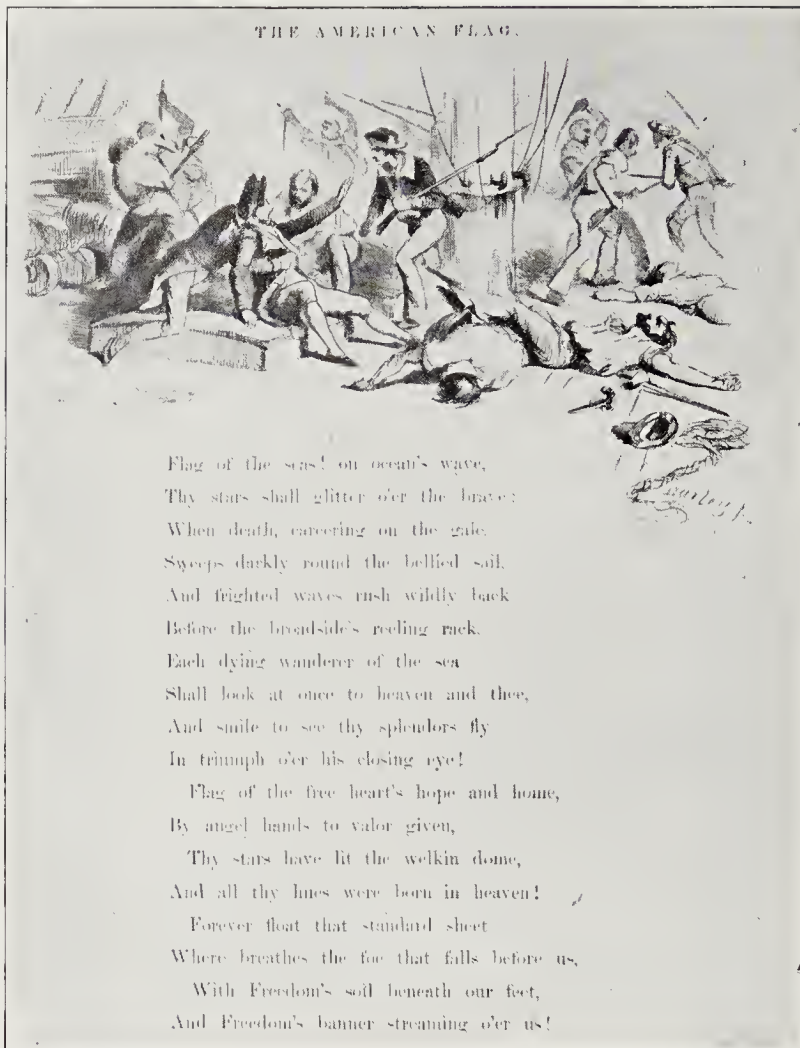 THE AMERICAN FLAG.
Flag of the seas! on ocean's wave,
Thy stars shall glitter o'er the brave;
When death, careering on the gale,
Sweeps darkly round the bellied sail,
And frighted waves rush wildly back
Before the broadside's reeling rack,
Each dying wanderer of the sea
Shall look at once to heaven and thee,
And smile to see thy splendors fly
In triumph o'er his closing eye!
Flag of the free heart's hope and home,
By angel hands to valor given,
Thy stars have lit the welkin dome,
And all thy hues were born in heaven!
Forever float that standard sheet
Where breathes the foe that falls before us,
With Freedom's soil beneath our feet,
And Freedom's banner streaming o'er us!